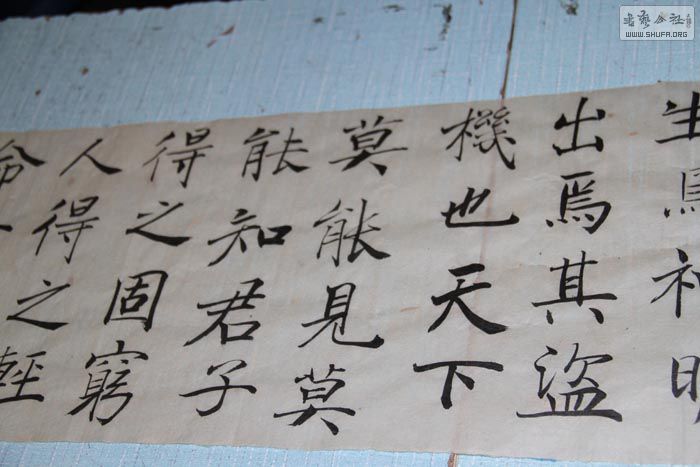 生焉神明
出焉其盜
機也天下
莫能見莫
能知君子
得之固窮
人得之輕
命
書藝公社
WWW.SHUFA.ORG